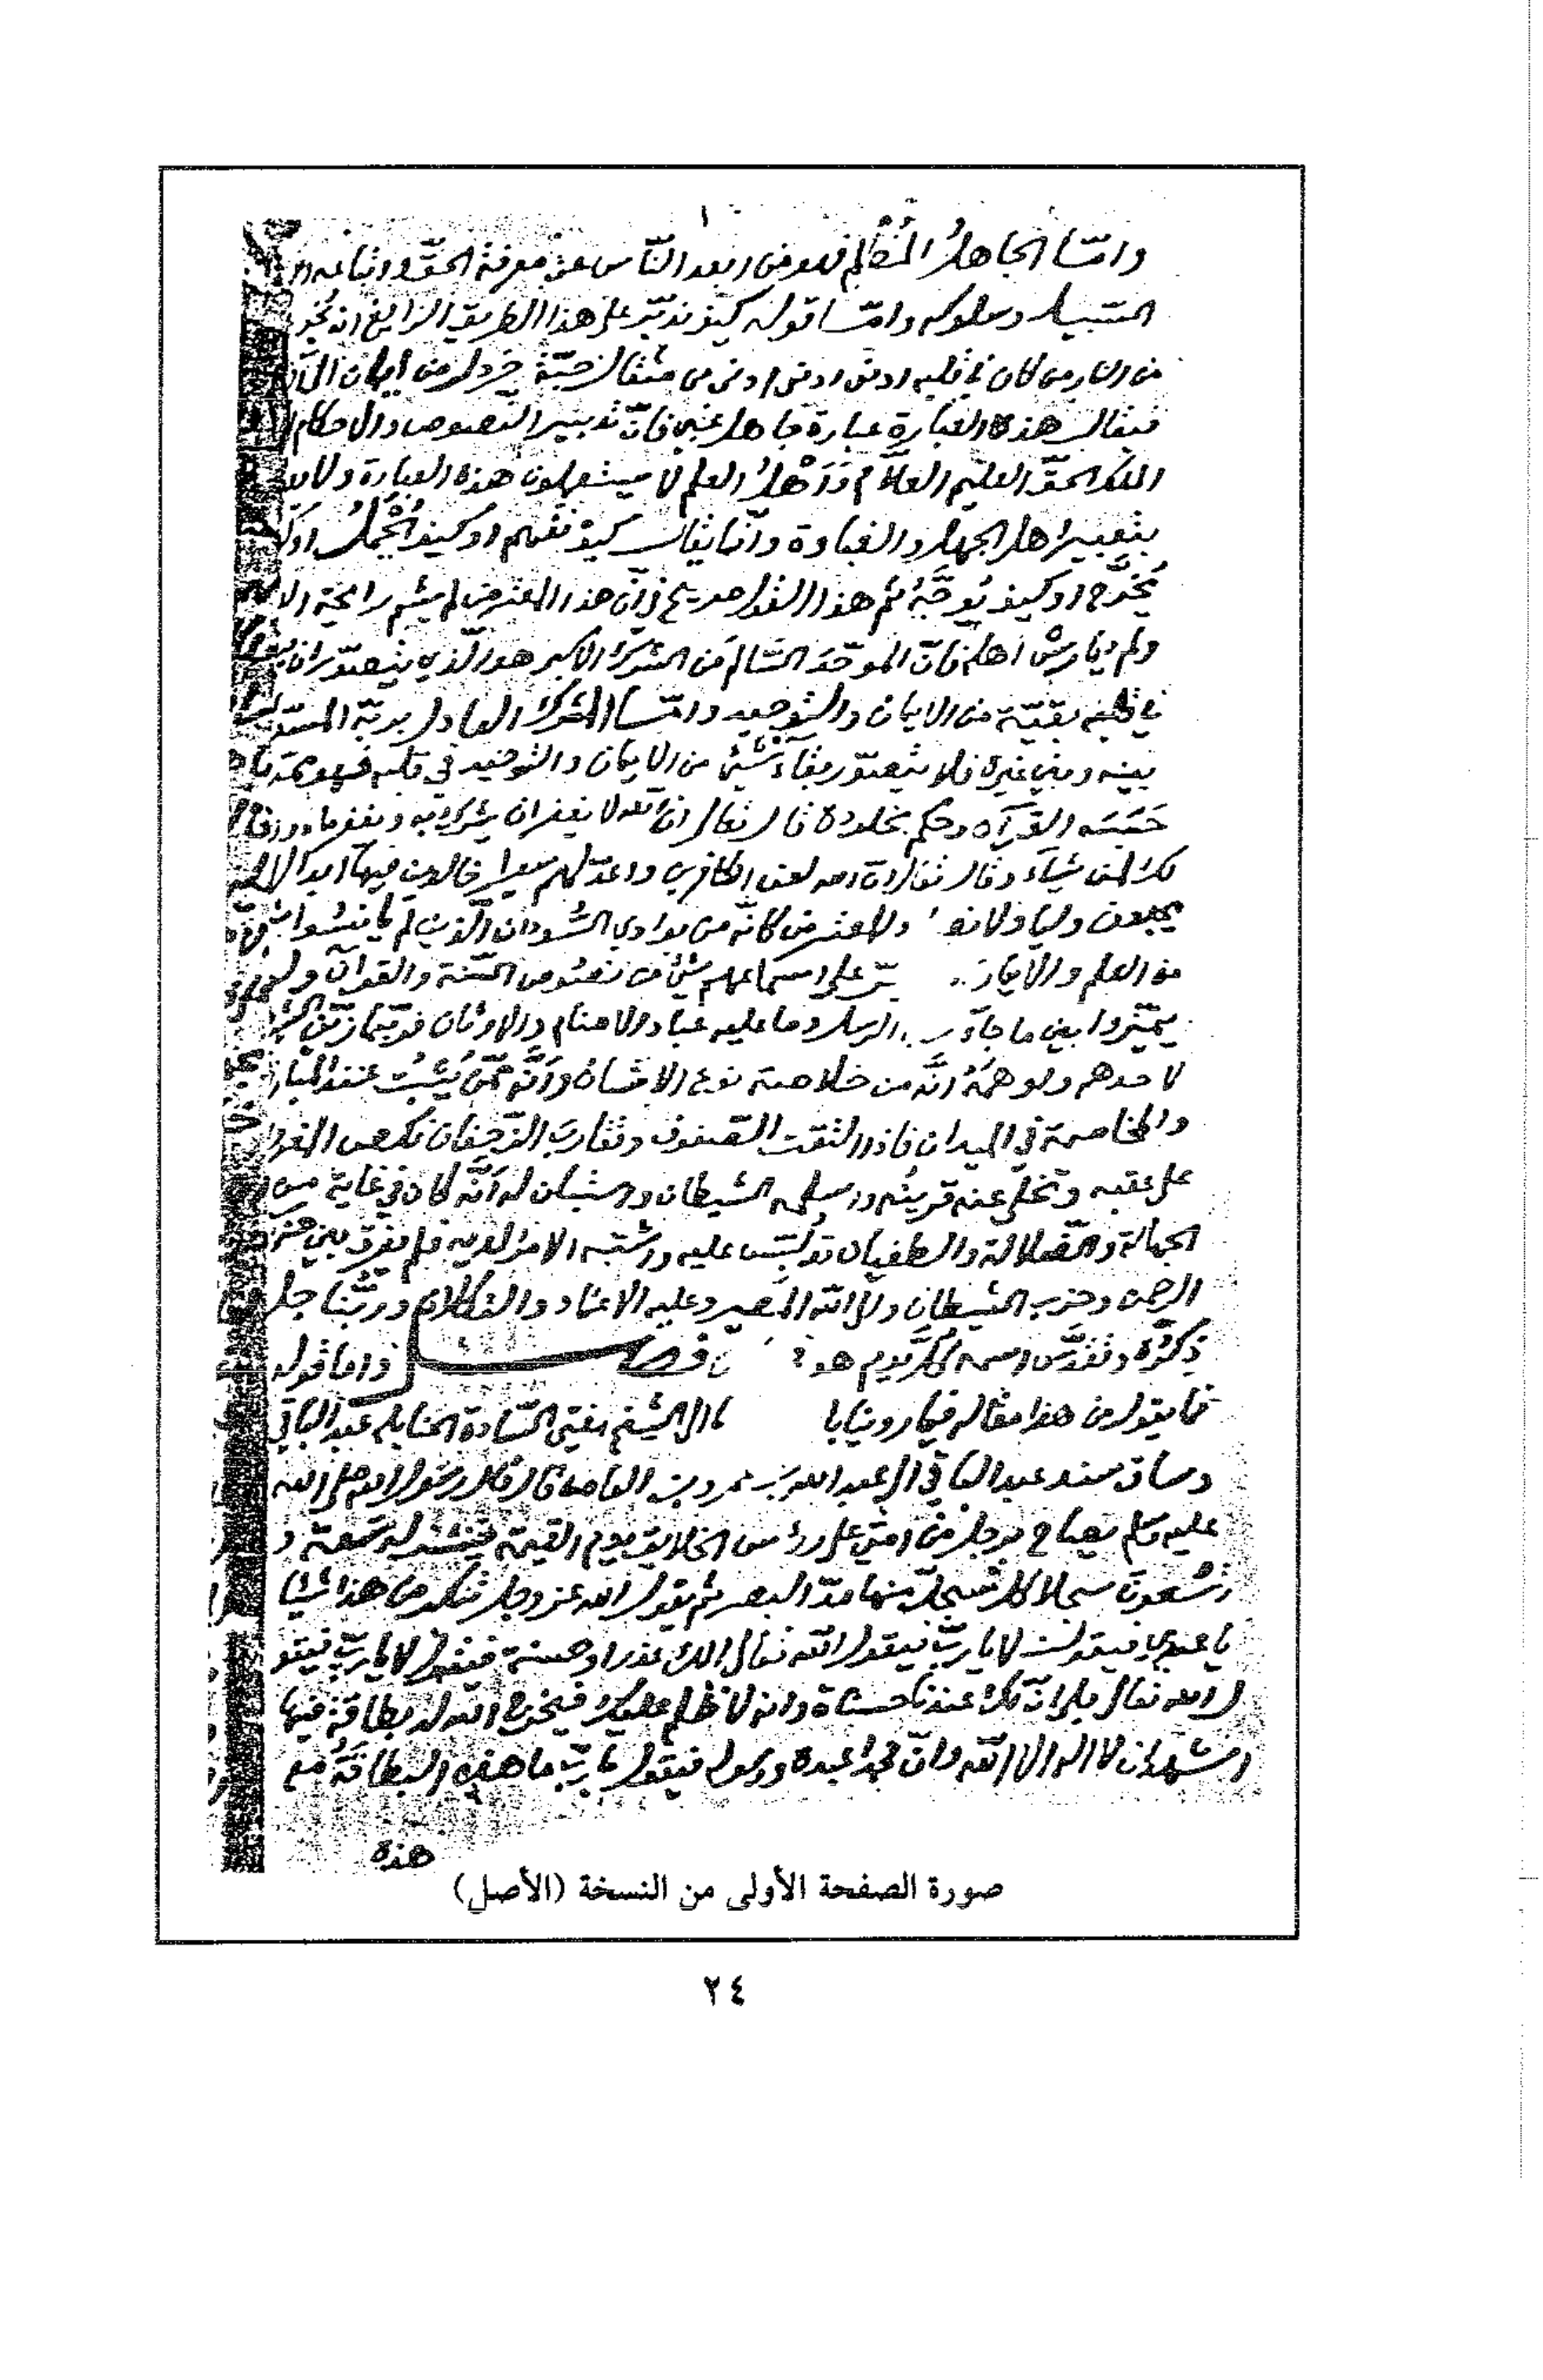 وامّا الجاهلُ المُظلِم فهو من ابعد النّاس عن معرفة الحقّ واتباعه
السّبيل وسلوكه وامّا قوله كيف ندبّر على هذا الطريق الزايغ انه يُخرج
من النار من كان في قلبه ادنى ادنى ادنى من مثقال حبّة خردل من ايمان
فيقال هذه العبارة عبارة جاهل غبي فانّ تدبير النصوص والاحكام
الملك الحقّ العليم العلّام وَاَهلُ العلم لا يستعملون هذه العبارة ولا
بتعبير اهل الجهل والغباوة وانّما يقال كيف تفهم او كيف تُحْمَلُ او
يُخَرَّج او كيف يُوجَّهُ ثم هذا القول صريح في انّ هذا المعترض لم يشم رايحة
ولم يمارسْ اهله فانّ الموحّدَ السّالم من الشرك الاكبر هو الّذي يتصوّر ان
في قلبه بقيّة من الايمان والتوحيد وامّا المشرك العادل بربّه المسوّي
بينه وبين غيره فلا يتصوّر بقاءُ شيء من الايمان والتوحيد في قلبه فهو ممّن
حَبَسَه القرآن وحكم بخلوده قال تعالى انّ الله لا يغفر ان يشرك به ويغفر ما دون
ذلك لمن يشاء وقال تعالى ان الله لعن الكافرين واعدّ لهم سعيرا خالدين فيها ابدا لا
يجدون وليا ولا نصيرا والمعترض كانّه من بوادي السّودان الّذين لم يانسوا بشيء
من العلم والايمان ولم يمرّ على اسماعهم شيء من نصوص السّنّة والقرآن ولم
يميّزوا بين ما جاءت به الرسل وما عليه عباد الاصنام والاوثان فربّما زيّن
لاحدهم ولو همَهُ انّه من خلاصة نوع الانسان وانّه ممّن يثبت عند المبارزة
والمخاصمة في الميدان فاذا التقت الصّفوف وتقارب الزّحفان نكص المغرور
على عقبه وتخلى عنه قرينُه واسلمه الشيطان واستبان له انّه كان في غاية من
الجهالة والضّلالة والطغيان قد لُبِّس عليه واشتبه الامر لديه فلم يفرّق بين حزب
الرحمن وحزب الشّيطان والى الله المصير وعليه الاعتماد والتكلان وربُّنا جل
ذكره وتقدّس اسمه كل يوم هو في شان فصل وامّا قوله
فما يقول من هذا مقاله فيما روينا با الى الشيخ مفتي السّادة الحنابله عبد الباقي
وساق سند عبد الباقي الى عبد الله بن عمرو بن العاص قال قال رسول الله صلى الله
عليه وسلم يصاح برجل من امّتي على رؤس الخلايق يوم القيمة فيُنشر له تسعة و
تسعون سجلا كل سجلّ منها مدّ البصر ثم يقول الله عز وجل تنكر من هذا شيئا
يا عبدي فيقول لا يا ربّ فيقول الله تعالى الك عذر او حسنة فيقول لا يا ربّ فيقو
ل الله تعالى بلى انّ لك عندنا حسناة وانه لا ظلم عليك فيخرج الله له بطاقة فيها
اشهد ان لا اله الا الله وانّ محمدا عبده ورسوله فيقول يا ربّ ما هذه البطاقة مع
هذه
صورة الصفحة الأولى من النسخة (الأصل)
٢٤